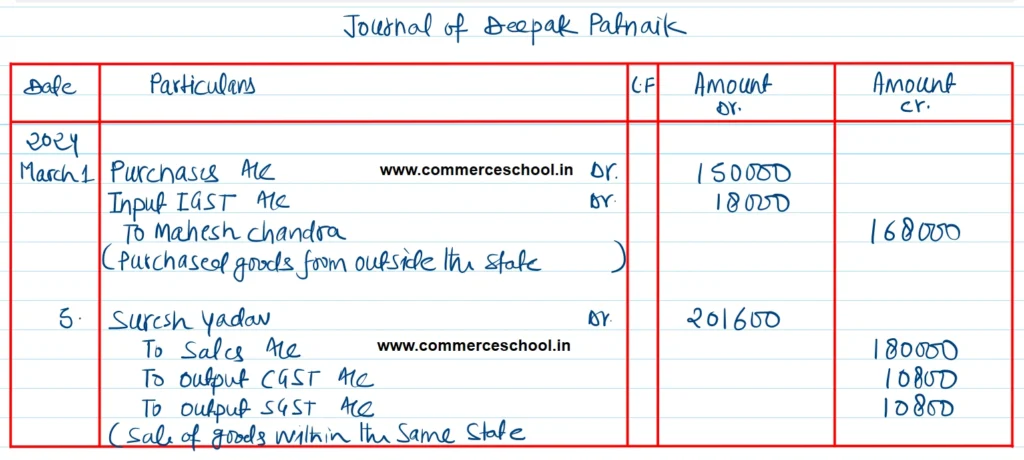 Journal of Deepak Patnaik
Date Particulars L.F Amount Dr. Amount Cr.
2024
March 1 Purchases A/c www.commerceschool.in Dr. 150000
Input IGST A/c Dr. 18000
To Mahesh Chandra 168000
(Purchased goods from outside the state )
5. Suresh Yadav Dr. 201600
To Sales A/c www.commerceschool.in 180000
To output CGST A/c 10800
To output SGST A/c 10800
(Sale of goods within the same state